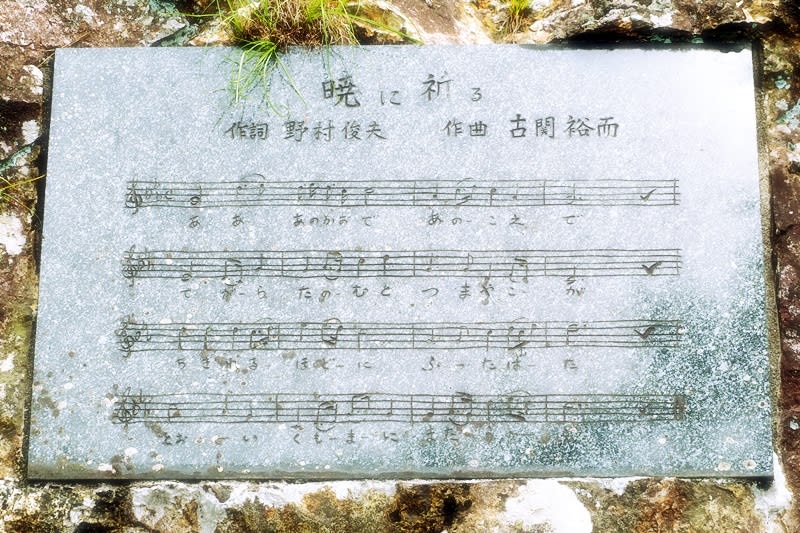 暁に祈る
作詞 野村俊夫 作曲 古関裕而
ああ あのかおで あのーこえで
てがーら たのーむと つまやこーが
ちぎれる ほどーに ふーたはーた
とおーーい くもーまーに また